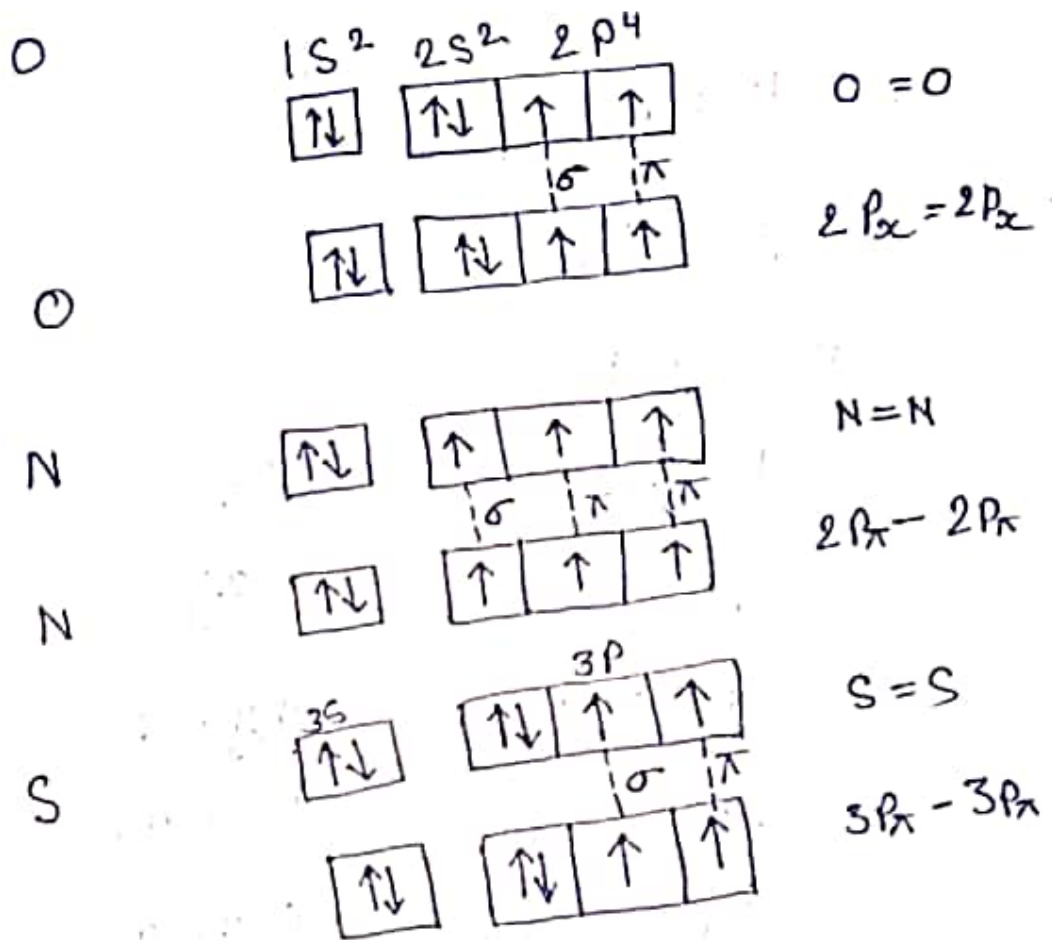 O 1S² 2S² 2P⁴
↑↓ ↑↓ ↑ ↑ O = O
σ π
↑↓ ↑↓ ↑ ↑ 2Px = 2Px
O
N ↑↓ ↑ ↑ ↑ N=N
σ π π
N ↑↓ ↑ ↑ ↑ 2Pπ - 2Pπ
3S 3P
↑↓ ↑↓ ↑ ↑ S = S
S σ π
↑↓ ↑↓ ↑ ↑ 3Pπ - 3Pπ